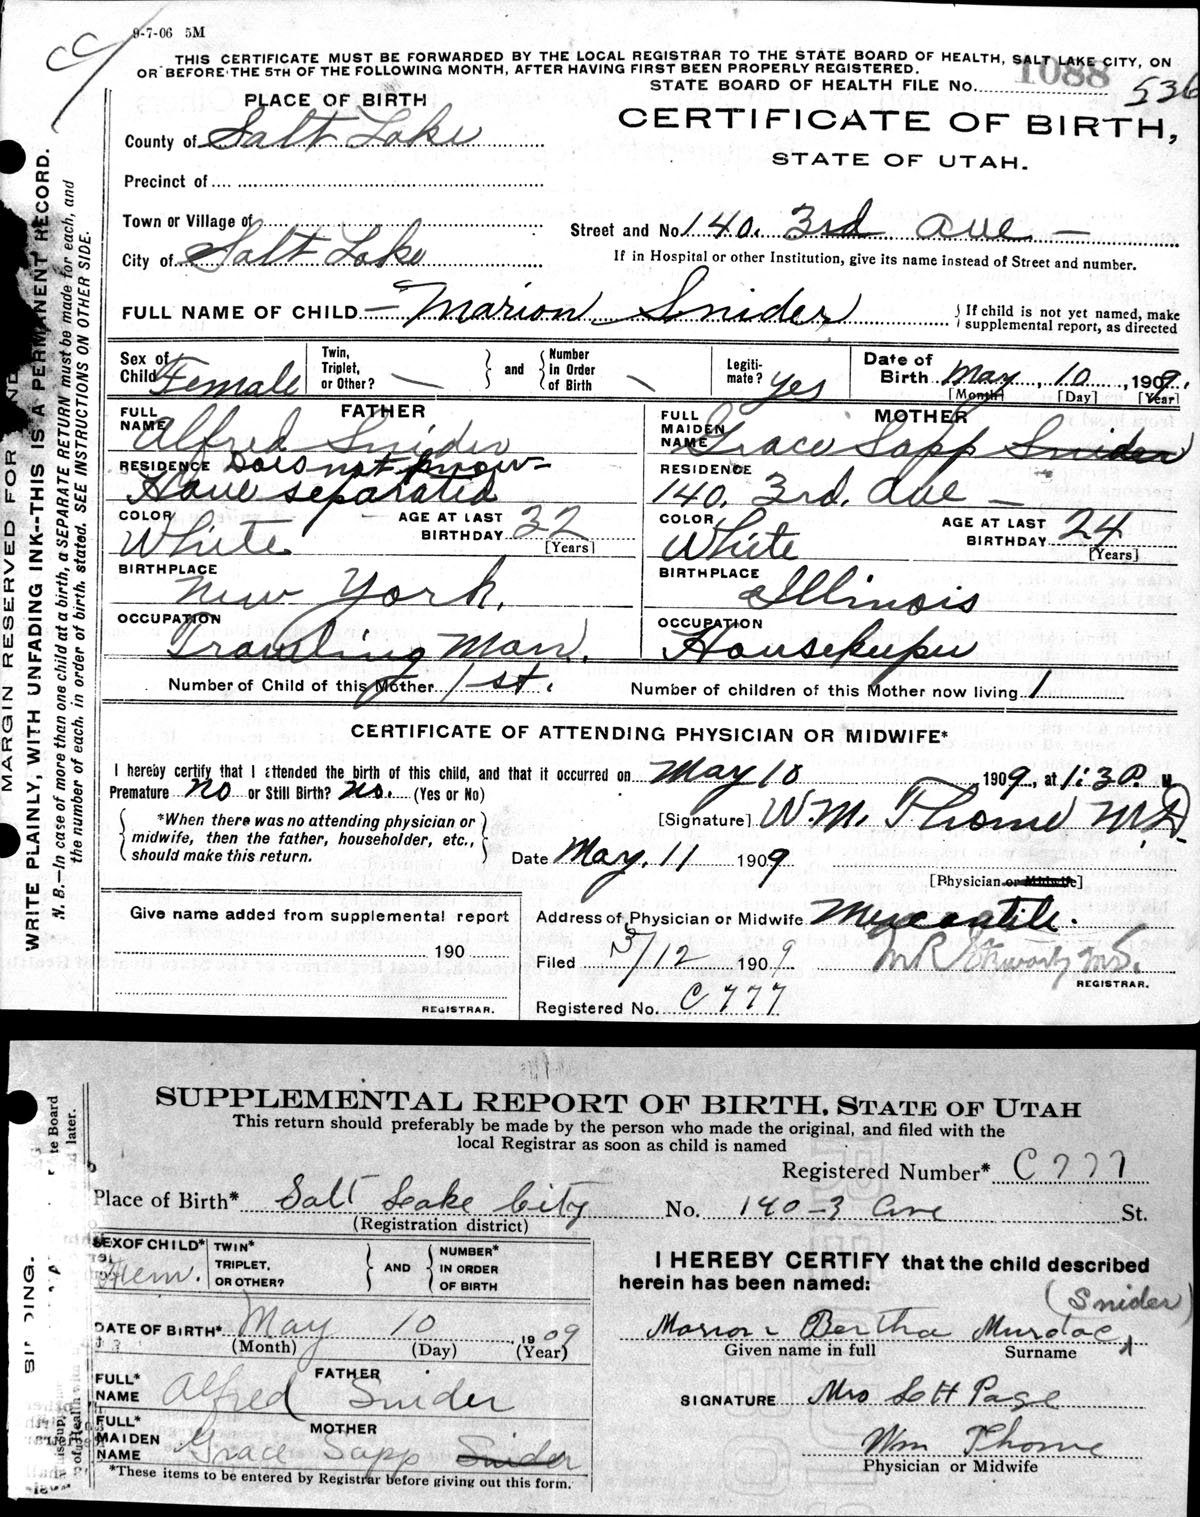 9-7-06 5M
THIS CERTIFICATE MUST BE FORWARDED BY THE LOCAL REGISTRAR TO THE STATE BOARD OF HEALTH, SALT LAKE CITY, ON
OR BEFORE THE 5TH OF THE FOLLOWING MONTH, AFTER HAVING FIRST BEEN PROPERLY REGISTERED.
STATE BOARD OF HEALTH FILE No. 1088 536
PLACE OF BIRTH
CERTIFICATE OF BIRTH,
STATE OF UTAH.
County of Salt Lake
Precinct of
Town or Village of
City of Salt Lake
Street and No. 140. 3rd ave —
If in Hospital or other Institution, give its name instead of Street and number.
FULL NAME OF CHILD — Marion Snider
If child is not yet named, make
supplemental report, as directed
Sex of Child Female
Twin, Triplet, or Other? —
and
Number In Order of Birth
Legiti-mate? yes
Date of Birth May, 10, 1909.
[Month] [Day] [Year]
FATHER
FULL NAME Alfred Snider
RESIDENCE Does not know—
Have separated
COLOR White
AGE AT LAST BIRTHDAY 32
[Years]
BIRTHPLACE
New York.
OCCUPATION
Travling Man.
MOTHER
FULL MAIDEN NAME Grace Sapp Snider
RESIDENCE
140. 3rd. ave —
COLOR White
AGE AT LAST BIRTHDAY 24
[Years]
BIRTHPLACE
Illinois
OCCUPATION
Housekeeper
Number of Child of this Mother 1st.
Number of children of this Mother now living 1
CERTIFICATE OF ATTENDING PHYSICIAN OR MIDWIFE*
I hereby certify that I attended the birth of this child, and that it occurred on May 10 1909, at 1:30 P. M
Premature no or Still Birth? no. (Yes or No)
*When there was no attending physician or
midwife, then the father, householder, etc.,
should make this return.
[Signature] W.M. Thome M.D.
Date May, 11 1909
[Physician or Midwife]
Give name added from supplemental report
190
REGISTRAR.
Address of Physician or Midwife Mercantile.
Filed 5/12 1909
REGISTRAR.
Registered No. C777
MARGIN RESERVED FOR
WRITE PLAINLY, WITH UNFADING INK--THIS IS A PERMANENT RECORD.
N. B.—In case of more than one child at a birth, a SEPARATE RETURN must be made for each, and
the number of each, in order of birth, stated. SEE INSTRUCTIONS ON OTHER SIDE.
SUPPLEMENTAL REPORT OF BIRTH, STATE OF UTAH
This return should preferably be made by the person who made the original, and filed with the
local Registrar as soon as child is named
Registered Number* C777
Place of Birth* Salt Lake City No. 140-3 Ave St.
(Registration district)
SEX OF CHILD* Fem.
TWIN* TRIPLET, OR OTHER?
AND
NUMBER* IN ORDER OF BIRTH
DATE OF BIRTH* May 10 1909
(Month) (Day) (Year)
FATHER
FULL* NAME Alfred Snider
MOTHER
FULL* MAIDEN NAME Grace Sapp Snider
*These items to be entered by Registrar before giving out this form.
I HEREBY CERTIFY that the child described
herein has been named:
(Snider)
Marion Bertha Murdoc
Given name in full Surname
SIGNATURE Mrs L H Page
Wm Thome
Physician or Midwife